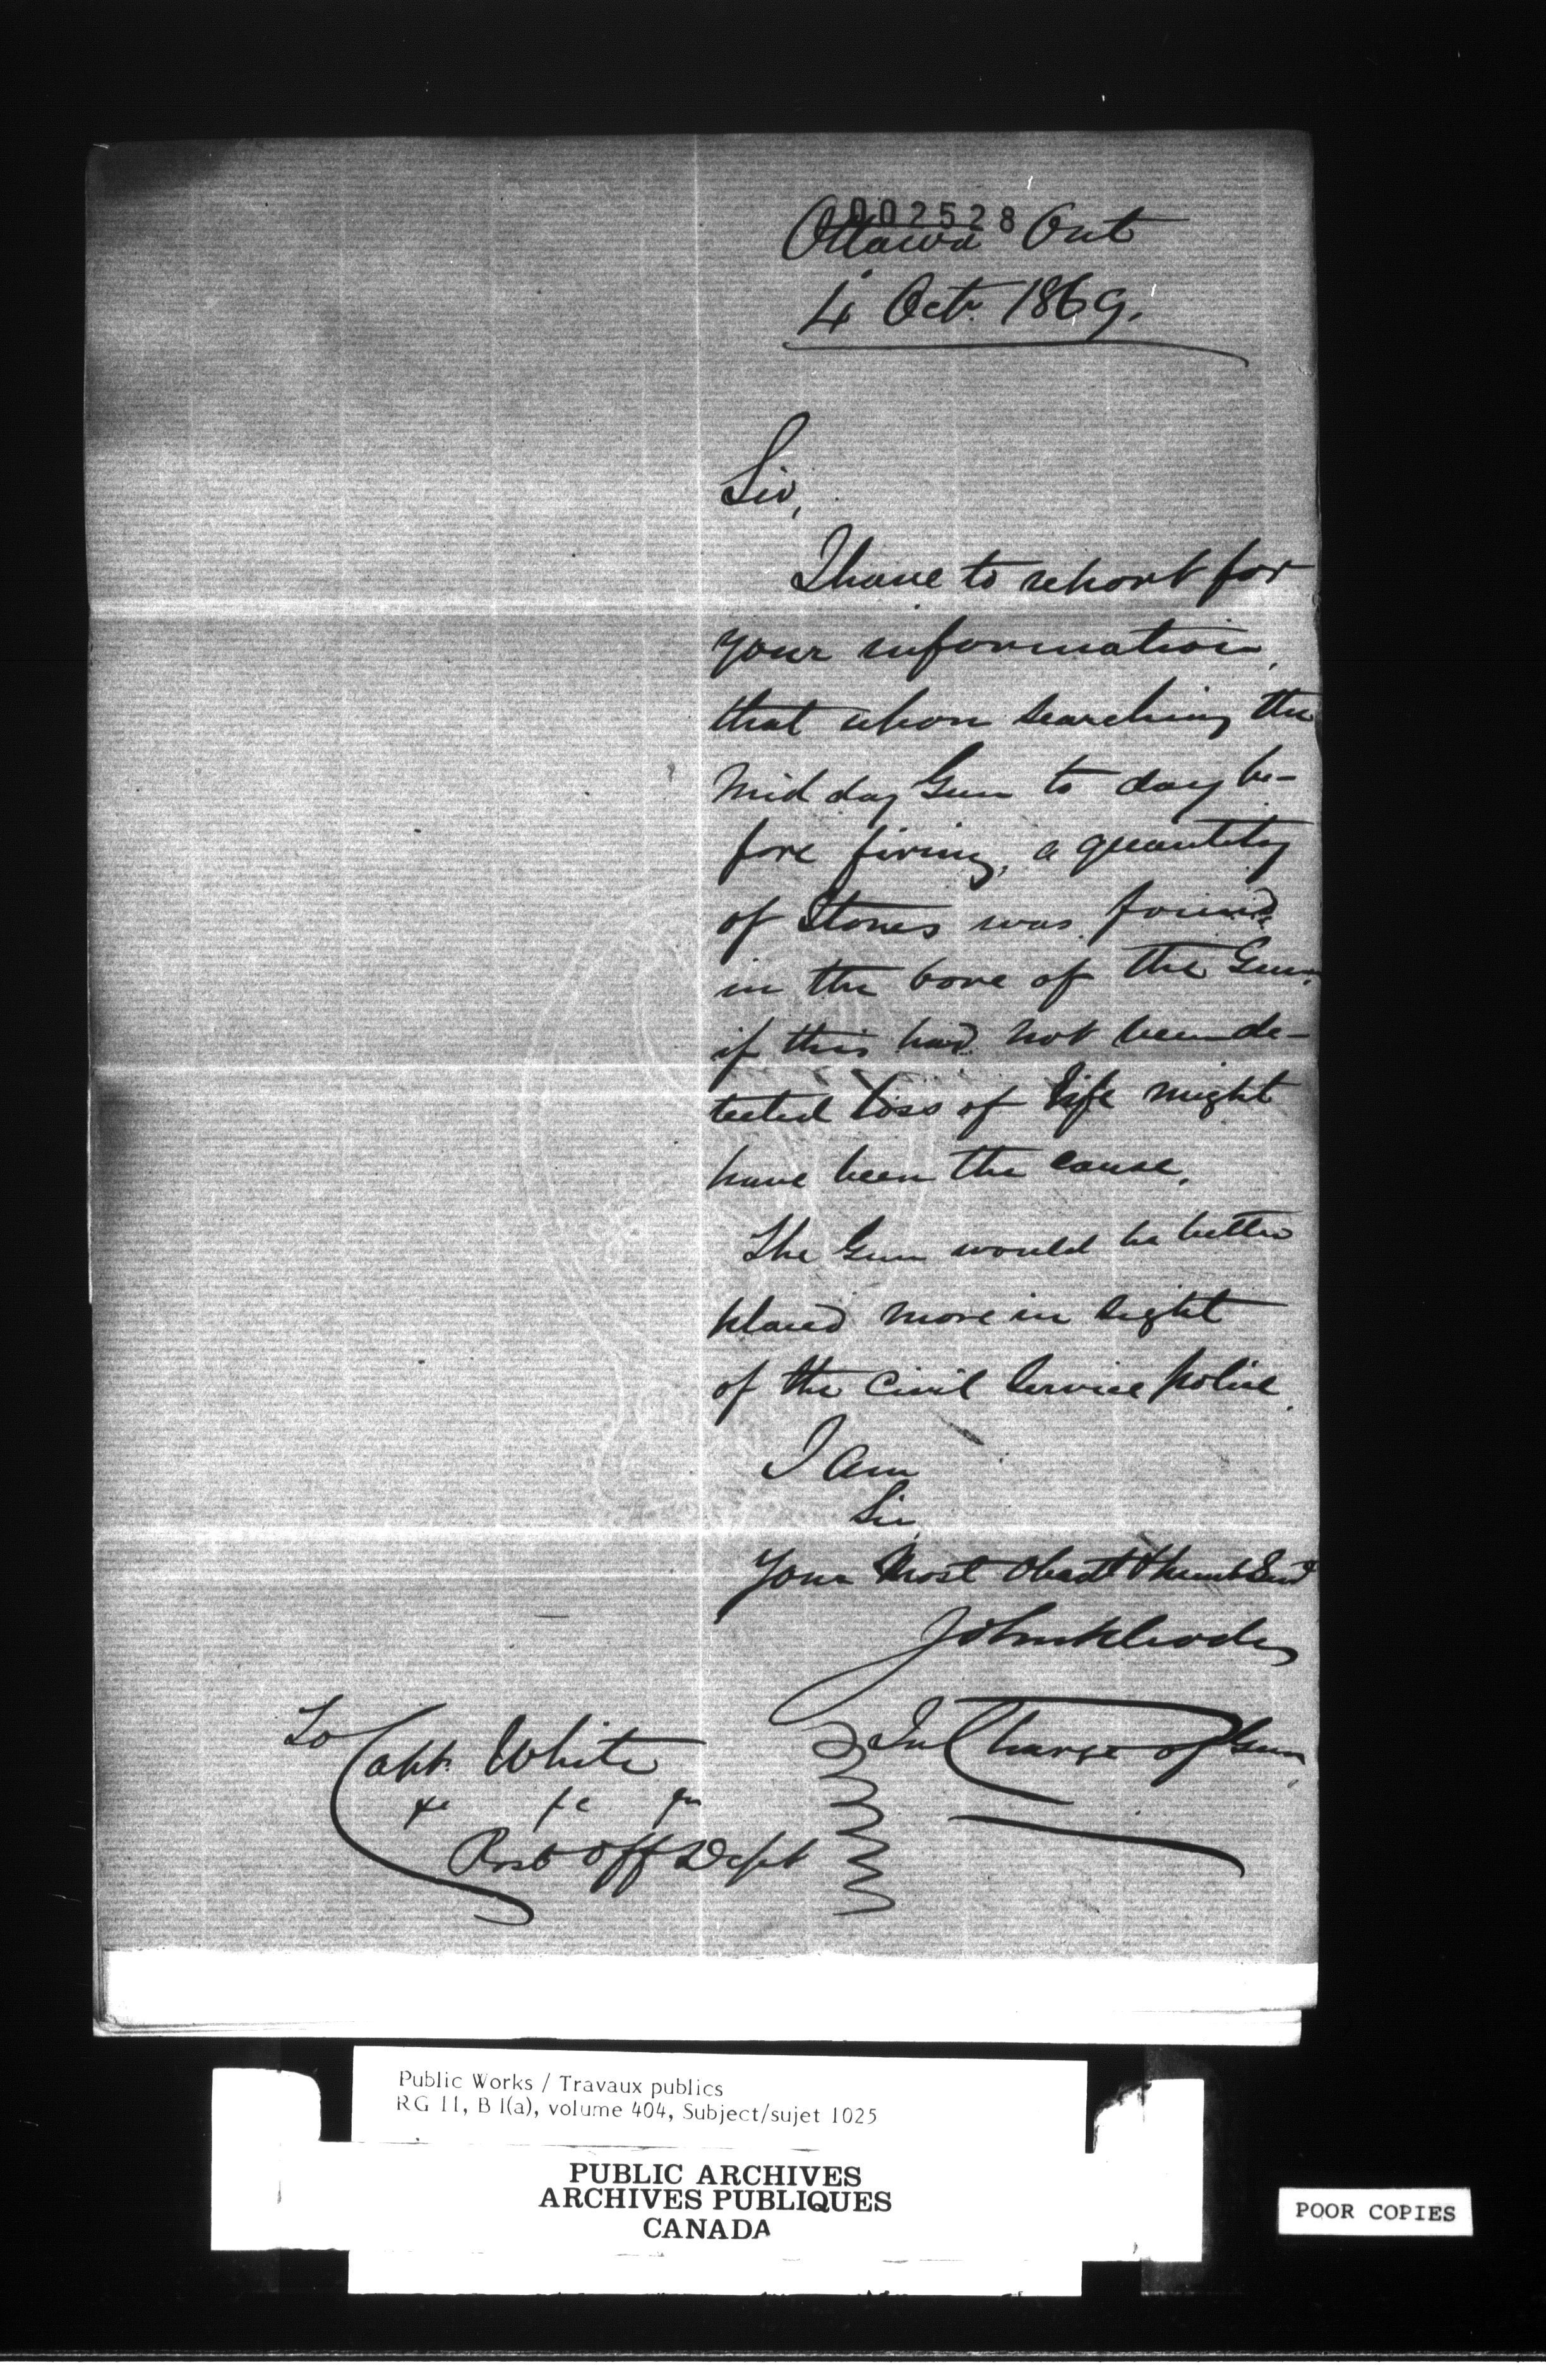 002528
Ottawa Ont
4 Octr. 1869.
Sir,
I have to report for
your information,
that upon searching the
Mid day Gun to day be-
fore firing, a quantity
of Stones was found
in the bore of the Gun,
if this had not been de-
tected loss of life might
have been the cause.
The Gun would be better
placed more in sight
of the Civil Service Police.
I am
Sir,
Your Most Obedt & humb Servt
John Rhodes
In Charge of Gun
To Capt. White
&c &c &c
Post Off Dept
Public Works / Travaux publics
RG 11, B 1(a), volume 404, Subject/sujet 1025
PUBLIC ARCHIVES
ARCHIVES PUBLIQUES
CANADA
POOR COPIES